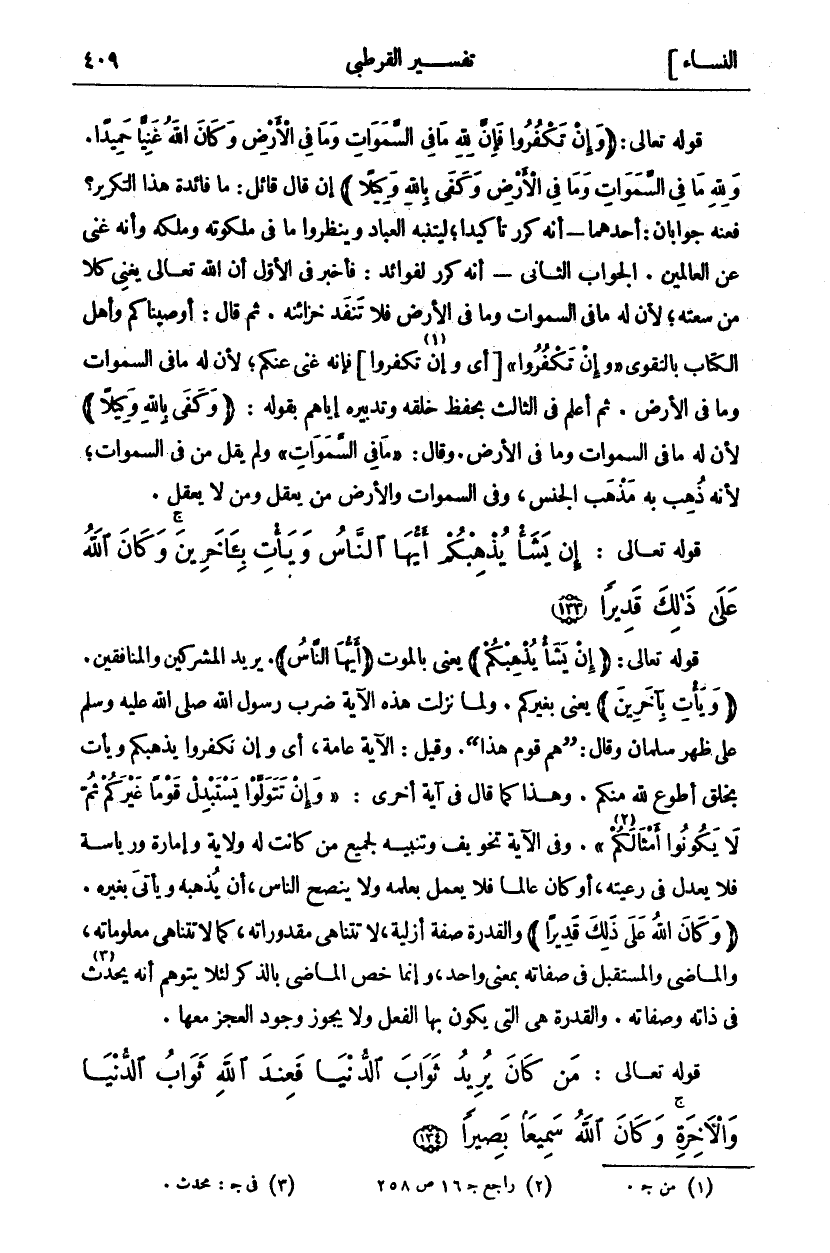 النساء ] تفسير القرطبى ٤٠٩
قوله تعالى: ﴿وَإِنْ تَكْفُرُوا فَإِنَّ لِلهِ مَافِى السَّمَوَاتِ وَمَا فِى الْأَرْضِ وَكَانَ اللهُ غَنِيًّا حَمِيدًا.
وَلِلهِ مَا فِى السَّمَوَاتِ وَمَا فِى الْأَرْضِ وَكَفَى بِاللهِ وَكِيلًا﴾ إن قال قائل: ما فائدة هذا التكرير؟
فعنه جوابان: أحدهما — أنه كرر تأكيدا؛ ليتنبه العباد وينظروا ما فى ملكوته وملكه وأنه غنى
عن العالمين . الجواب الثانى — أنه كرر لفوائد : فأخبر فى الأوّل أن الله تعالى يغنى كلا
من سعته؛ لأن له مافى السموات وما فى الأرض فلا تَنفَد خزائنه . ثم قال : أوصيناكم وأهل
الكتاب بالتقوى «وإِنْ تَكْفُرُوا» [أى وإن تكفروا](١) فإنه غنى عنكم؛ لأن له مافى السموات
وما فى الأرض . ثم أعلم فى الثالث بحفظ خلقه وتدبيره إياهم بقوله : ﴿وَكَفَى بِاللهِ وَكِيلًا﴾
لأن له مافى السموات وما فى الأرض. وقال: «مَافِى السَّمَوَاتِ» ولم يقل من فى السموات؛
لأنه ذُهِب به مَذْهَب الجنس، وفى السموات والأرض من يعقل ومن لا يعقل .
قوله تعالى : إِن يَشَأْ يُذْهِبْكُمْ أَيُّهَا ٱلنَّاسُ وَيَأْتِ بِـَٔاخَرِينَ ۚ وَكَانَ ٱللَّهُ
عَلَىٰ ذَٰلِكَ قَدِيرًا ١٣٣
قوله تعالى: ﴿إِنْ يَشَأْ يُذْهِبْكُمْ﴾ يعنى بالموت ﴿أَيُّهَا النَّاسُ﴾. يريد المشركين والمنافقين.
﴿وَيَأْتِ بِآخَرِينَ﴾ يعنى بغيركم . ولما نزلت هذه الآية ضرب رسول الله صلى الله عليه وسلم
على ظهر سلمان وقال: ”هم قوم هذا“. وقيل : الآية عامة، أى وإن تكفروا يذهبكم ويأت
بخلق أطوع لله منكم . وهذا كما قال فى آية أخرى : «وَإِنْ تَتَوَلَّوْا يَسْتَبْدِلْ قَوْمًا غَيْرَكُمْ ثُمَّ
لَا يَكُونُوا أَمْثَالَكُمْ(٢)» . وفى الآية تخويف وتنبيه لجميع من كانت له ولاية وإمارة ورياسة
فلا يعدل فى رعيته، أو كان عالما فلا يعمل بعلمه ولا ينصح الناس، أن يُذهبه ويأتىَ بغيره .
﴿وَكَانَ اللهُ عَلَى ذَلِكَ قَدِيرًا﴾ والقدرة صفة أزلية، لا تتناهى مقدوراته، كما لا تتناهى معلوماته،
والماضى والمستقبل فى صفاته بمعنى واحد، وإنما خص الماضى بالذكر لئلا يتوهم أنه يحدث(٣)
فى ذاته وصفاته . والقدرة هى التى يكون بها الفعل ولا يجوز وجود العجز معها .
قوله تعالى : مَن كَانَ يُرِيدُ ثَوَابَ ٱلدُّنْيَا فَعِندَ ٱللَّهِ ثَوَابُ ٱلدُّنْيَا
وَٱلْأٓخِرَةِ ۚ وَكَانَ ٱللَّهُ سَمِيعًۢا بَصِيرًا ١٣٤
(١) من جـ . (٢) راجع جـ ١٦ ص ٢٥٨ (٣) فى جـ : محدث .